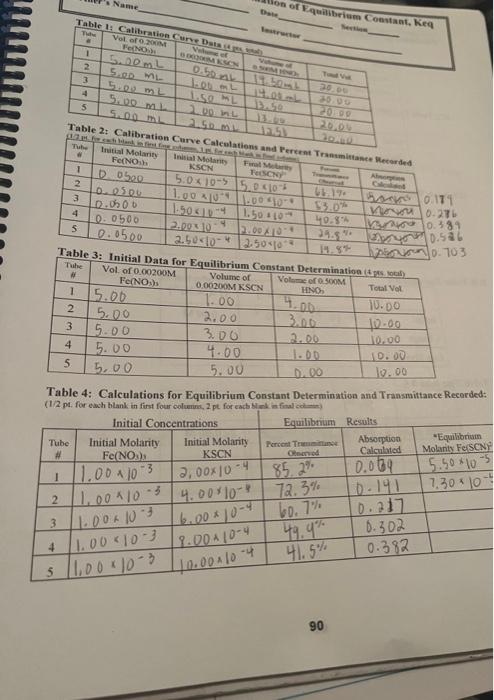 Name
of Equilibrium Constant, Keq
Date
Section
Instructor
Table 1: Calibration Curve Data
Tube # Vol. of 0.200M Fe(NO₃)₃ Volume of KSCN Volume of Total Vol.
1 5.00mL 0.50mL 14.50mL 20.00
2 5.00 mL 1.00 mL 14.00mL 20.00
3 5.00 mL 1.50 mL 13.50 20.00
4 5.00 mL 2.00 mL 13.00 20.00
5 5.00 mL 2.50 mL 12.50 20.00
Table 2: Calibration Curve Calculations and Percent Transmittance Recorded
Tube # Initial Molarity Fe(NO₃)₃ Initial Molarity KSCN Final Molarity Fe(SCN) Percent Transmittance Observed Absorption Calculated
1 0.0500 5.0x10-5 5.0x10-5 66.1% 0.179
2 0.0500 1.00x10-4 1.00x10-4 53.0% 0.276
3 0.0500 1.50x10-4 1.50x10-4 40.8% 0.389
4 0.0500 2.00x10-4 2.00x10-4 29.8% 0.526
5 0.0500 2.50x10-4 2.50x10-4 19.8% 0.703
Table 3: Initial Data for Equilibrium Constant Determination (4 pts. total)
Tube # Vol. of 0.00200M Fe(NO₃)₃ Volume of 0.00200M KSCN Volume of 0.500M HNO₃ Total Vol.
1 5.00 1.00 4.00 10.00
2 5.00 2.00 3.00 10.00
3 5.00 3.00 2.00 10.00
4 5.00 4.00 1.00 10.00
5 5.00 5.00 0.00 10.00
Table 4: Calculations for Equilibrium Constant Determination and Transmittance Recorded:
(1/2 pt. for each blank in first four columns, 2 pt. for each blank in final column)
Initial Concentrations Equilibrium Results
Tube # Initial Molarity Fe(NO₃)₃ Initial Molarity KSCN Percent Transmittance Observed Absorption Calculated *Equilibrium Molarity Fe(SCN)
1 1.00x10-3 2.00x10-4 85.2% 5.50x10-5
2 1.00x10-3 4.00x10-4 72.3% 0.141 7.30x10-5
3 1.00x10-3 6.00x10-4 60.7% 0.217
4 1.00x10-3 8.00x10-4 49.9% 0.302
5 1.00x10-3 10.00x10-4 41.5% 0.382
90